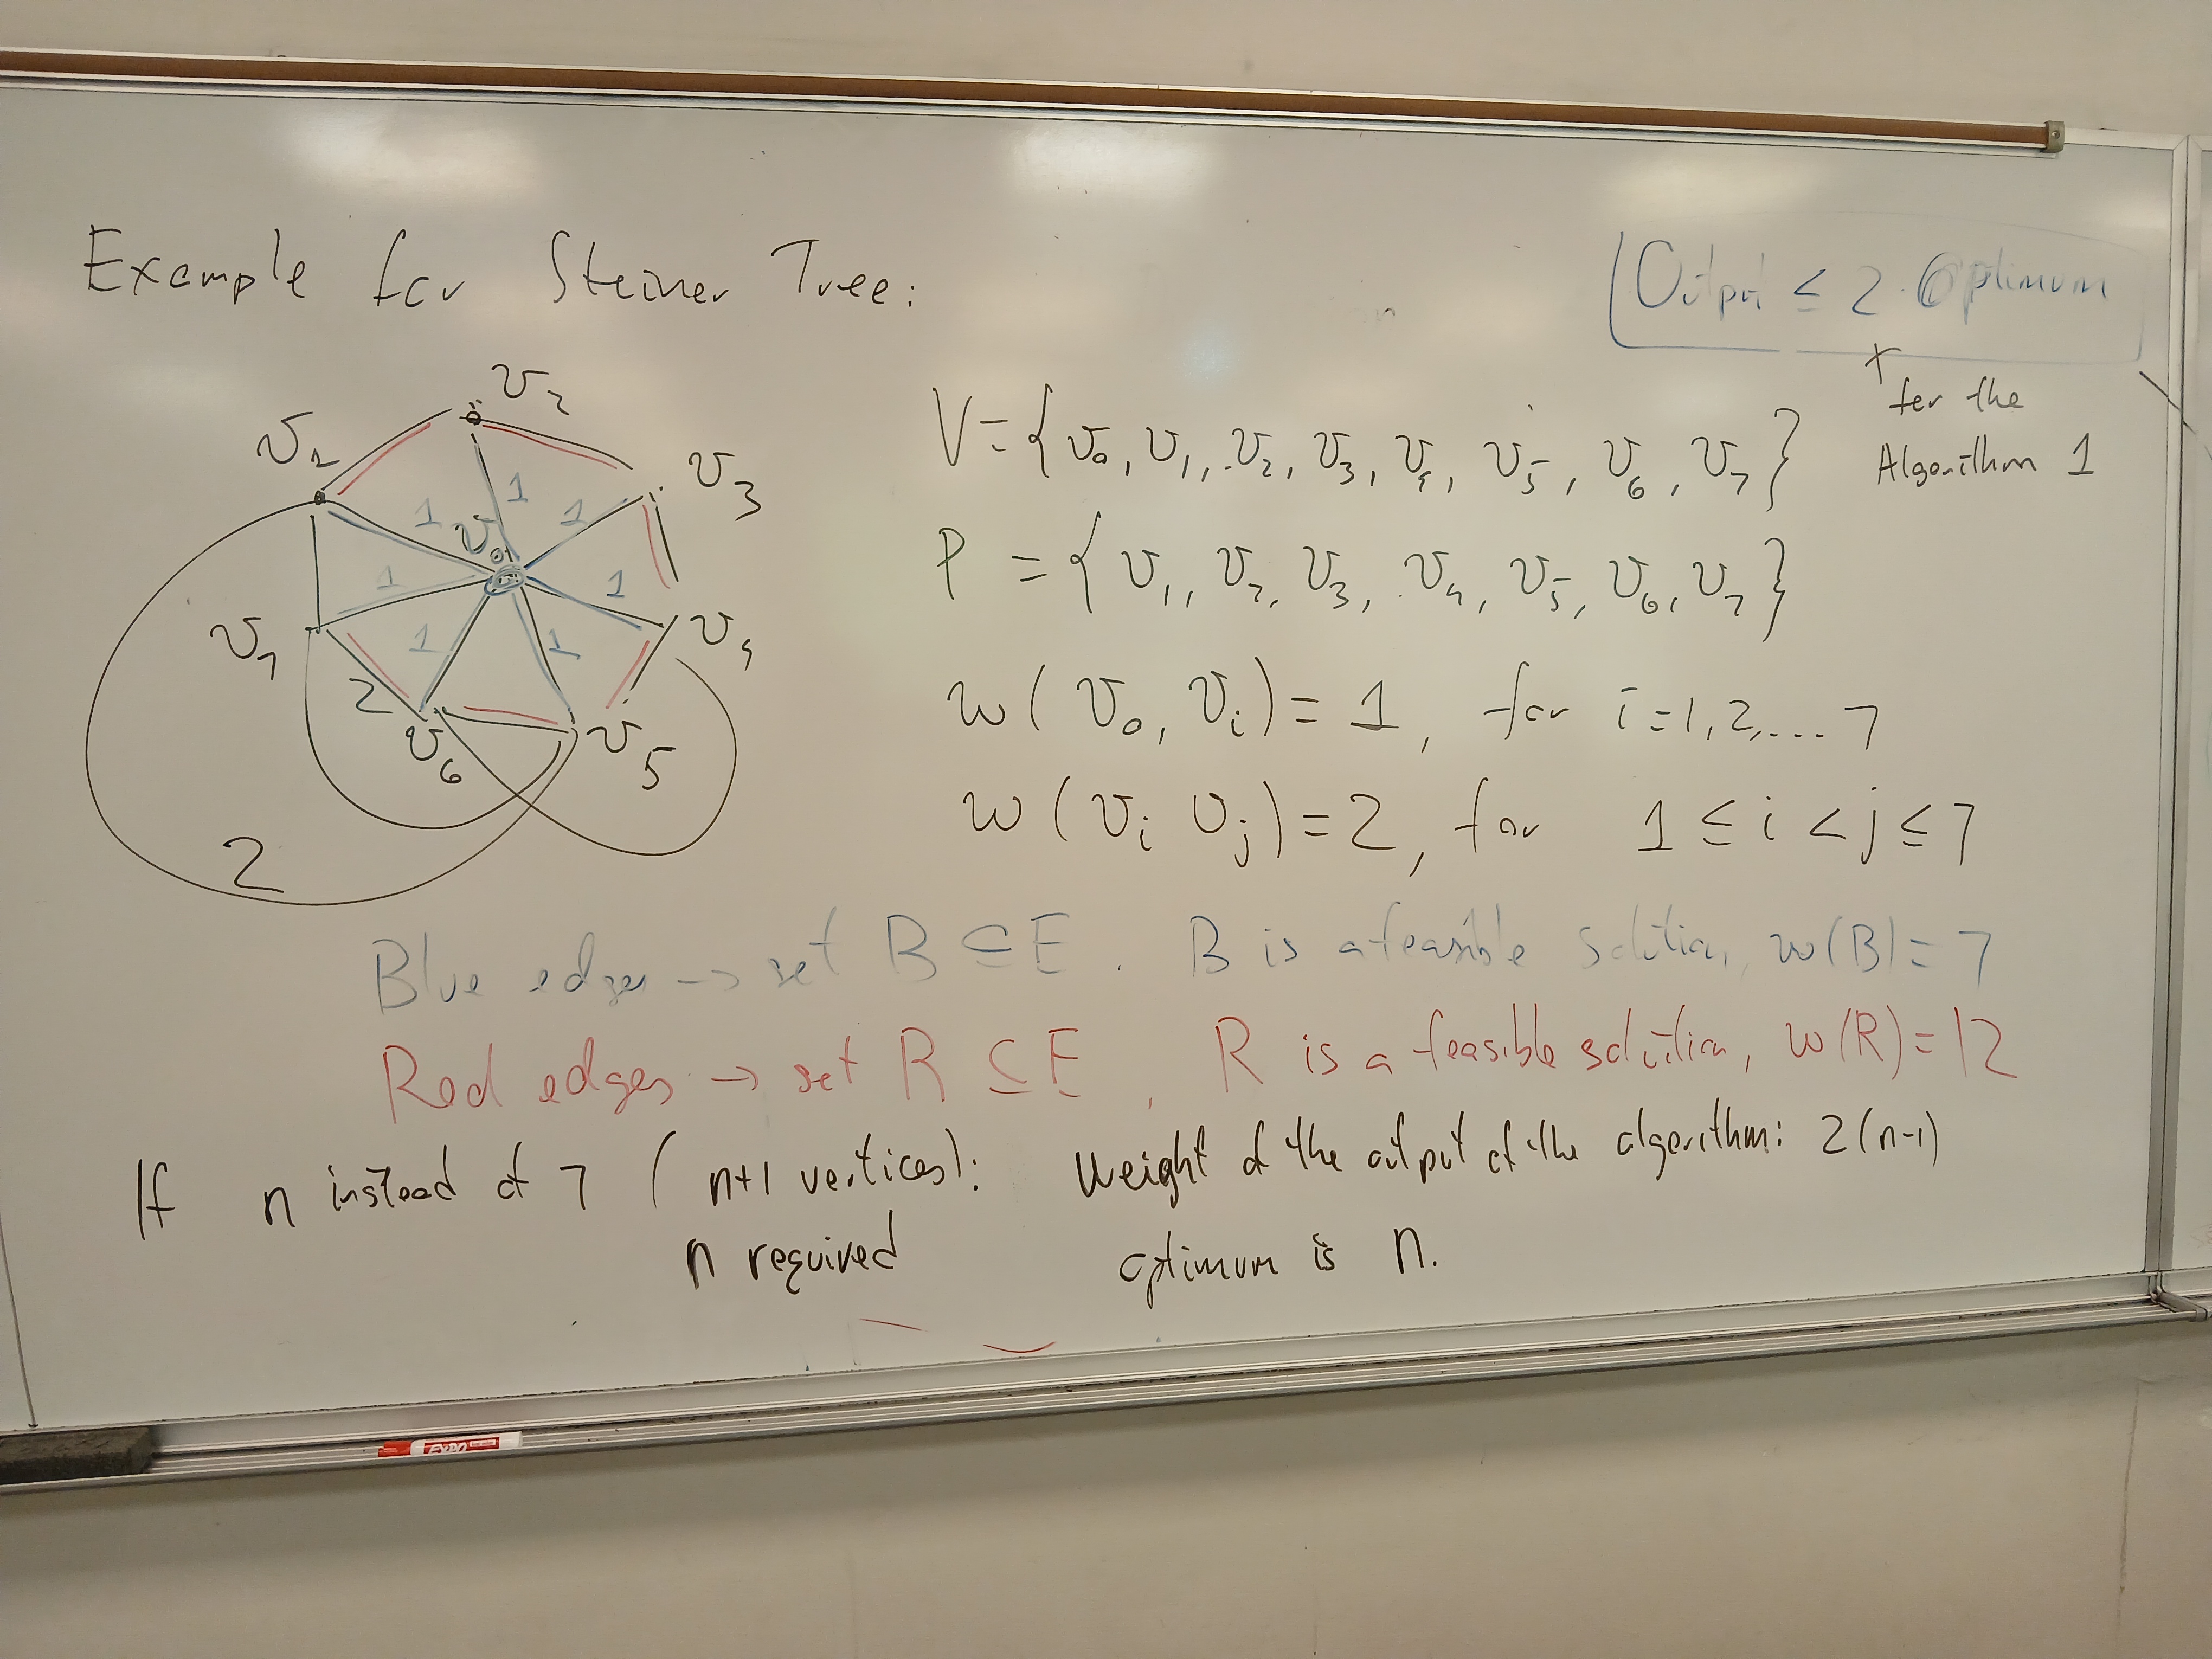 Example for Steiner Tree:
Output ≤ 2 · Optimum
for the
Algorithm 1
v₂
v₁
v₃
1
1
1
v₀
1
1
v₇
v₄
1
1
2
v₆
v₅
2
V = {v₀, v₁, v₂, v₃, v₄, v₅, v₆, v₇}
P = {v₁, v₂, v₃, v₄, v₅, v₆, v₇}
w(v₀, vᵢ) = 1, for i = 1, 2, ... 7
w(vᵢ vⱼ) = 2, for 1 ≤ i < j ≤ 7
Blue edges → set B ⊆ E. B is a feasible solution, w(B) = 7
Red edges → set R ⊆ E, R is a feasible solution, w(R) = 12
If n instead of 7 (n+1 vertices): Weight of the output of the algorithm: 2(n-1)
n required optimum is n.
EXPO